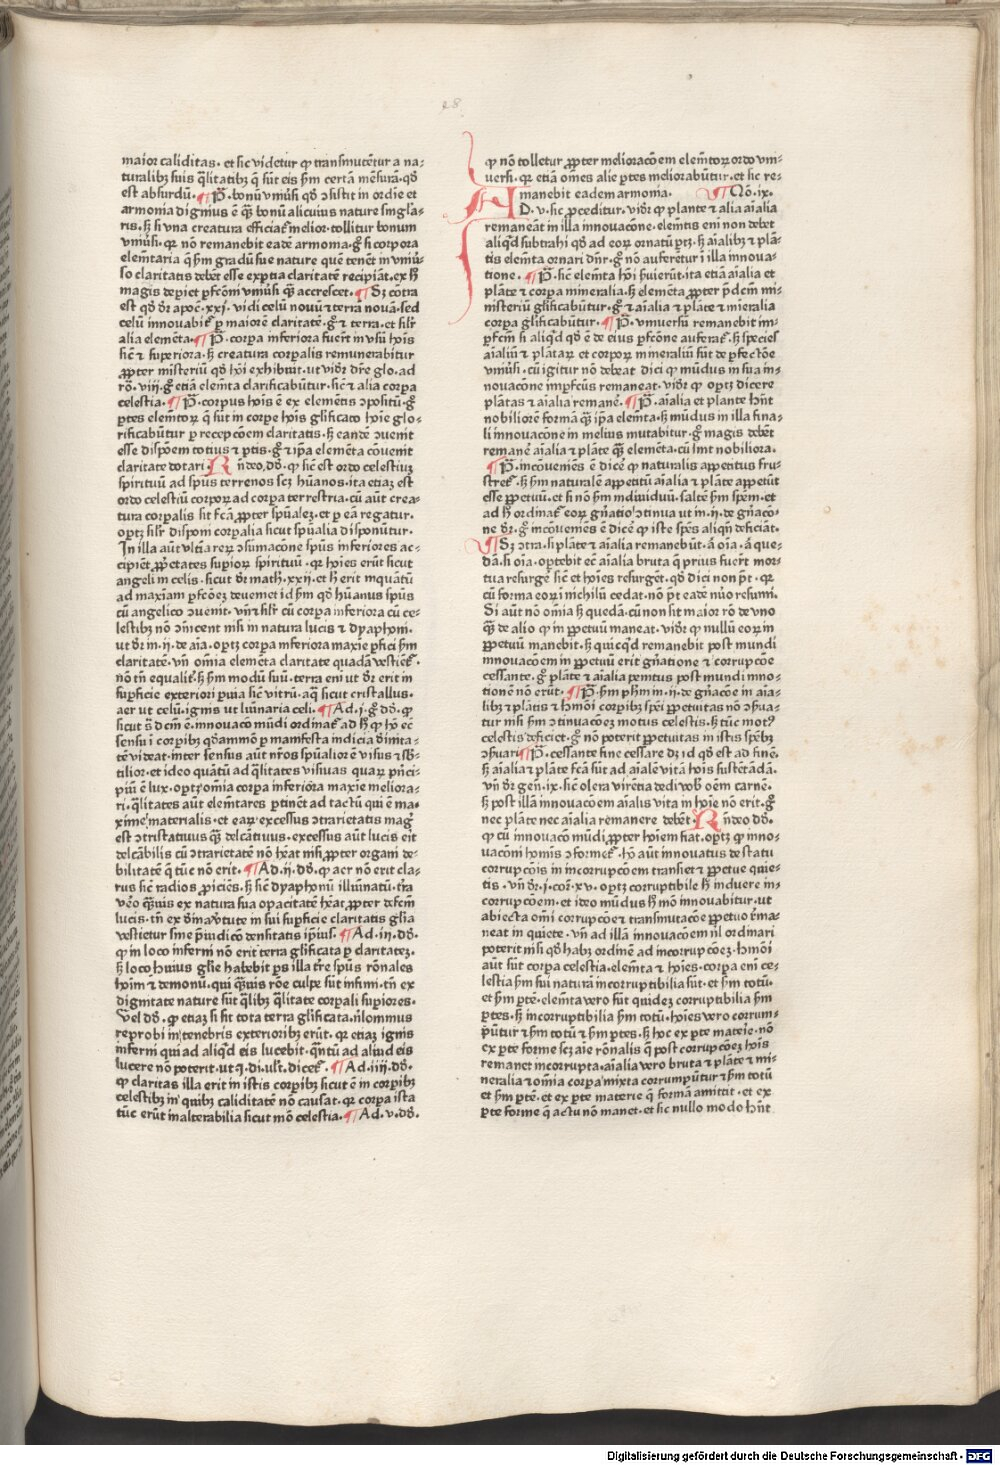 28
maior caliditas. et sic videtur ꝙ transmutētur a na⸗
turalibꝫ suis q̄litatibꝫ q̄ sūt eis ẜm certā mēsurā. qđ
est absurdū. ¶ P̄. bonū vniūsi qđ ↄsistit in ordīe et
armonia digniūs ē q̄ꝫ bonū alicuius nature singl̄a⸗
ris. sꝫ si vna creatura efficiat᷑ melior. tollitur bonum
vniūsi. qꝛ nō remanebit eadē armonia. gͦ si corpora
elemētaria q̄ ẜm gradū sue nature quē tenēt in vniū⸗
so claritatis debēt esse exptia claritatē recipiāt. ex hͦ
magis depiet pfcōni vniūsi q̄ꝫ accrescet. ¶ Sꝫ cōtra
est qđ dr̄ apoc̄. xxi. vidi celū nouū ⁊ terrā nouā. sed
celū innouabit᷑ p maiorē claritatē. gͦ ⁊ terra. et sil̄r
alia elemēta. ¶ P̄. corpa inferiora fuer̄t in vsū hoīs
sic̄ ⁊ superiora. sꝫ creatura corpalis remunerabitur
ꝓpter misteriū qđ hoī exhibuit. ut vidr̄ dr̄e glo. ad
rō. viii. gͦ etiā elemēta clarificabūtur. sic̄ ⁊ alia corpa
celestia. ¶ P̄. corpus hoīs ē ex elemētis ↄpositū. gͦ
ptes elemētoꝝ q̄ sūt in corpe hoīs glificato hoīe glo⸗
rificabūtur p recepcōem claritatis. sꝫ eandē ↄuenit
esse dispōem totius ⁊ ptis. gͦ ⁊ ip̄a elemēta cōuenit
claritate dotari. Rn̄deo. dđ. ꝙ sic̄ est ordo celestiuꝫ
spirituū ad spūs terrenos scꝫ hūanos. ita etiaꝫ est
ordo celestiū corpoꝝ ad corpa terrestria. cū aūt crea⸗
tura corpalis sit fcā ꝓpter spūaleꝫ. et p eā regatur.
optꝫ sil̄r disponi corpalia sicut spūalia disponūtur.
In illa aūt vltīa reꝝ ↄsumacōne spūs inferiores ac⸗
cipiēt ꝓpetates supioꝝ spirituū. qꝛ hoīes erūt sicut
angeli in celis. sicut dr̄ math. xxii. et hͦ erit inquātū
ad maxiam pfcōeꝫ deuemet id ẜm qđ hūanus spūs
cū angelico ↄuenit. vn̄ ⁊ sil̄r cū corpa inferiora cū ce⸗
lestibꝫ nō ↄīcent nisi in natura lucis ⁊ dyaphoni.
ut dr̄ in. ii. de aīa. optꝫ corpa inferiora maxīe pfici ẜm
claritatē. vn̄ omīa elemēta claritate quadā vestient᷑.
nō tn̄ equalit᷑. sꝫ ẜm modū suū. terra enī ut dr̄ erit in
supficie exteriori puia sic̄ vitrū. aq̄ sicut cristallus.
aer ut celū. ignis ut luīnaria celi. ¶ Ad. i. gͦ dđ. ꝙ
sicut s̄ dcm̄ ē. innouacō mūdi ordinat᷑ ad hͦ ꝙ hō ec̄
sensu ī corpibꝫ qđammō p manifesta indicia diīnita⸗
tē videat. inter sensus aūt nr̄os spūalior ē visus ⁊ sb⸗
tilior. et ideo quātū ad q̄litates visiuas quaꝝ pn̄ci⸗
piū ē lux. optꝫ omīa corpa inferiora maxīe meliora⸗
ri. q̄litates aūt elemētares ptinēt ad tactū qui ē ma⸗
xīme materialis. et eaꝝ excessus ↄtrarietatis mag᷒
est ↄtristatiuus q̄ꝫ delc̄atiuus. excessus aūt lucis erit
delc̄abilis cū ↄtrarietatē nō hēat nisi ꝓpter organi de⸗
bilitatē q̄ tūc nō erit. ¶ Ad. ii. dđ. ꝙ aer nō erit cla⸗
rus sic̄ radios ꝓiciēs. sꝫ sic̄ dyaphonū illuīnatū. tr̄a
vēo q̄uīs ex natura sua opacitatē hēat ꝓpter defcm̄
lucis. tn̄ ex diīna v̄tute in sui supficie claritatis gl̄ia
vestietur sine p̄iudicō densitatis ip̄ius. ¶ Ad. iii. dđ.
ꝙ in loco inferni nō erit terra glificata p claritateꝫ.
sꝫ loco huius gl̄ie habebit ps illa tr̄e spūs rōnales
hoīm ⁊ demonū. qui q̄uīs rōe culpe sūt infimi. tn̄ ex
dignitate nature sūt q̄libꝫ q̄litate corpali supiores.
Vel dđ. ꝙ etiaꝫ si sit tota terra glificata. nilominus
reprobi in tenebris exterioribꝫ erūt. qꝛ etiaꝫ ignis
inferni qui ad aliqđ eis lucebit. q̄ntū ad aliud eis
lucere nō poterit. ut q. di. ult̄. dicet᷑. ¶ Ad. iiii. dđ.
ꝙ claritas illa erit in istis corpibꝫ sicut ē in corpibꝫ
celestibꝫ in quibꝫ caliditatē nō causat. qꝛ corpa ista
tūc erūt inalterabilia sicut mō celestia. ¶ Ad. v. dđ.
ꝙ nō tolletur ꝓpter melioracōem elemētoꝝ ordo vni⸗
uersi. qꝛ etiā omēs alie ptes meliorabūtur. et sic re⸗
manebit eadem armonia. ¶ Nō. ix.
AD. v. sic ꝓceditur. vidr̄ ꝙ plante ⁊ alia aīalia
remaneāt in illa innouacōne. elemētis eni non debet
aliqđ subtrahi qđ ad eoꝝ ornatū ptꝫ. sꝫ aīalibꝫ ⁊ plā⸗
tis elemēta ornari dn̄r. gͦ nō auferētur ī illa innoua⸗
tione. ¶ P̄. sic̄ elemēta hoī ẜuierūt. ita etiā aīalia et
plāte ⁊ corpa mineralia. sꝫ elemēta ꝓpter p̄dcm̄ mi⸗
nisteriū gl̄ificabūtur. gͦ ⁊ aīalia ⁊ plante ⁊ mīeralia
corpa gl̄ificabūtur. ¶ P̄. vniuersū remanebit im⸗
pfcm̄ si aliqđ qđ ē de eius pfcōne auferat᷑. sꝫ species
aīaliū ⁊ plātaꝝ et corpoꝝ mineraliū sūt de pfectōe
vniūsi. cū igitur nō debeat dici ꝙ mūdus in sua in⸗
nouacōne impfcūs remaneat. vidr̄ ꝙ optꝫ dicere
plātas ⁊ aīalia remanē. ¶ P̄. aīalia et plante hn̄t
nobiliorē formā q̄ꝫ ip̄a elemēta. sꝫ mūdus in illa fina⸗
li innouacōne in melius mutabitur. gͦ magis debēt
remanē aīalia ⁊ plāte q̄ꝫ elemēta. cū sint nobiliora.
¶ P̄. incōueniēs ē dicē ꝙ naturalis appetitus fru⸗
stret᷑. sꝫ ẜm naturalē appetitū aīalia ⁊ plāte appetūt
esse ꝓpetuū. et si nō ẜm indiuiduū. saltē ẜm spēm. et
ad hͦ ordinat᷑ eoꝝ gn̄atio ↄtinua ut in. ii. de gn̄acō⸗
ne dr̄. gͦ incōueniēs ē dicē ꝙ iste spēs aliqn̄ deficiāt.
¶ Sꝫ ↄtra. si plāte ⁊ aīalia remanebūt. aut oīa. aut que⸗
dā. si oīa. optebit ec̄ aīalia bruta q̄ prius fuer̄t mor⸗
tua resurgē sic̄ et hoīes resurget. qđ dici non p̄t. qꝛ
cū forma eoꝝ ī nichilū cedat. nō p̄t eadē nūo resumi.
Si aūt nō omīa sꝫ quedā. cū non sit maior rō de vno
q̄ꝫ de alio ꝙ in ꝓpetuū maneat. vidr̄ ꝙ nullū eoꝝ in
ꝓpetuū manebit. sꝫ quicq̄d remanebit post mundi
innouacōem in ꝓpetuū erit gn̄atione ⁊ corrupcōe
cessante. gͦ plāte ⁊ aīalia penitus post mundi inno⸗
tionē nō erūt. ¶ P̄. ẜm phm̄ in. ii. de gn̄acōe in aīa⸗
libꝫ ⁊ plātis ⁊ hꝰmōi corpibꝫ spēi ꝓpetuitas nō ↄẜua⸗
tur nisi ẜm ↄtinuacōeꝫ motus celestis. sꝫ tūc motꝰ
celestis deficiet. gͦ nō poterit ꝓpetuitas in istis spēbꝫ
ↄẜuari. ¶ P̄. cessante fine cessare dꝫ id qđ est ad finē.
sꝫ aīalia ⁊ plāte fcā sūt ad aīalē vitā hoīs sustētādā.
vn̄ dr̄ gen̄. ix. sic̄ olera virētia dedi vob̄ oēm carnē.
sꝫ post illā innouacōem aīalis vita in hoīe nō erit. gͦ
nec plāte nec aīalia remanere debēt. Rn̄deo dđ.
ꝙ cū innouacō mūdi ꝓpter hoīem fiat. optꝫ ꝙ inno⸗
uacōni hoīnis ↄformet᷑. hō aūt innouatus de statu
corrupcōis in incorrupcōem transiet ⁊ ꝓpetue quie⸗
tis. vn̄ dr̄. i. cor̄. xv. optꝫ corruptibile hͦ induere in⸗
corrupcōem. et ideo mūdus hͦ mō innouabitur. ut
abiecta omī corrupcōe ⁊ transmutacōe ꝓpetuo r̄ma⸗
neat in quiete. vn̄ ad illā innouacōem nil ordinari
poterit nisi qđ habꝫ ordinē ad incorrupcōeꝫ. hꝰmōi
aūt sūt corpa celestia. elemēta ⁊ hoīes. corpa enī ce⸗
lestia ẜm sui naturā incorruptibilia sūt. et ẜm totū.
et ẜm ptē. elemēta vero sūt quideꝫ corruptibilia ẜm
ptes. sꝫ incorruptibilia ẜm totū. hoīes vero corrum⸗
pūtur ⁊ ẜm totū ⁊ ẜm ptes. sꝫ hoc ex pte mateie. nō
ex pte forme scꝫ aīe rōnalis q̄ post corrupcōeꝫ hoīs
remanet incorrupta. aīalia vero bruta ⁊ plāte ⁊ mi⸗
neralia ⁊ omīa corpa mixta corrumpūtur ⁊ ẜm totū
et ẜm ptē. et ex pte materie q̄ formā amittit. et ex
pte forme q̄ actu nō manet. et sic nullo modo hn̄t
Digitalisierung gefördert durch die Deutsche Forschungsgemeinschaft - DFG